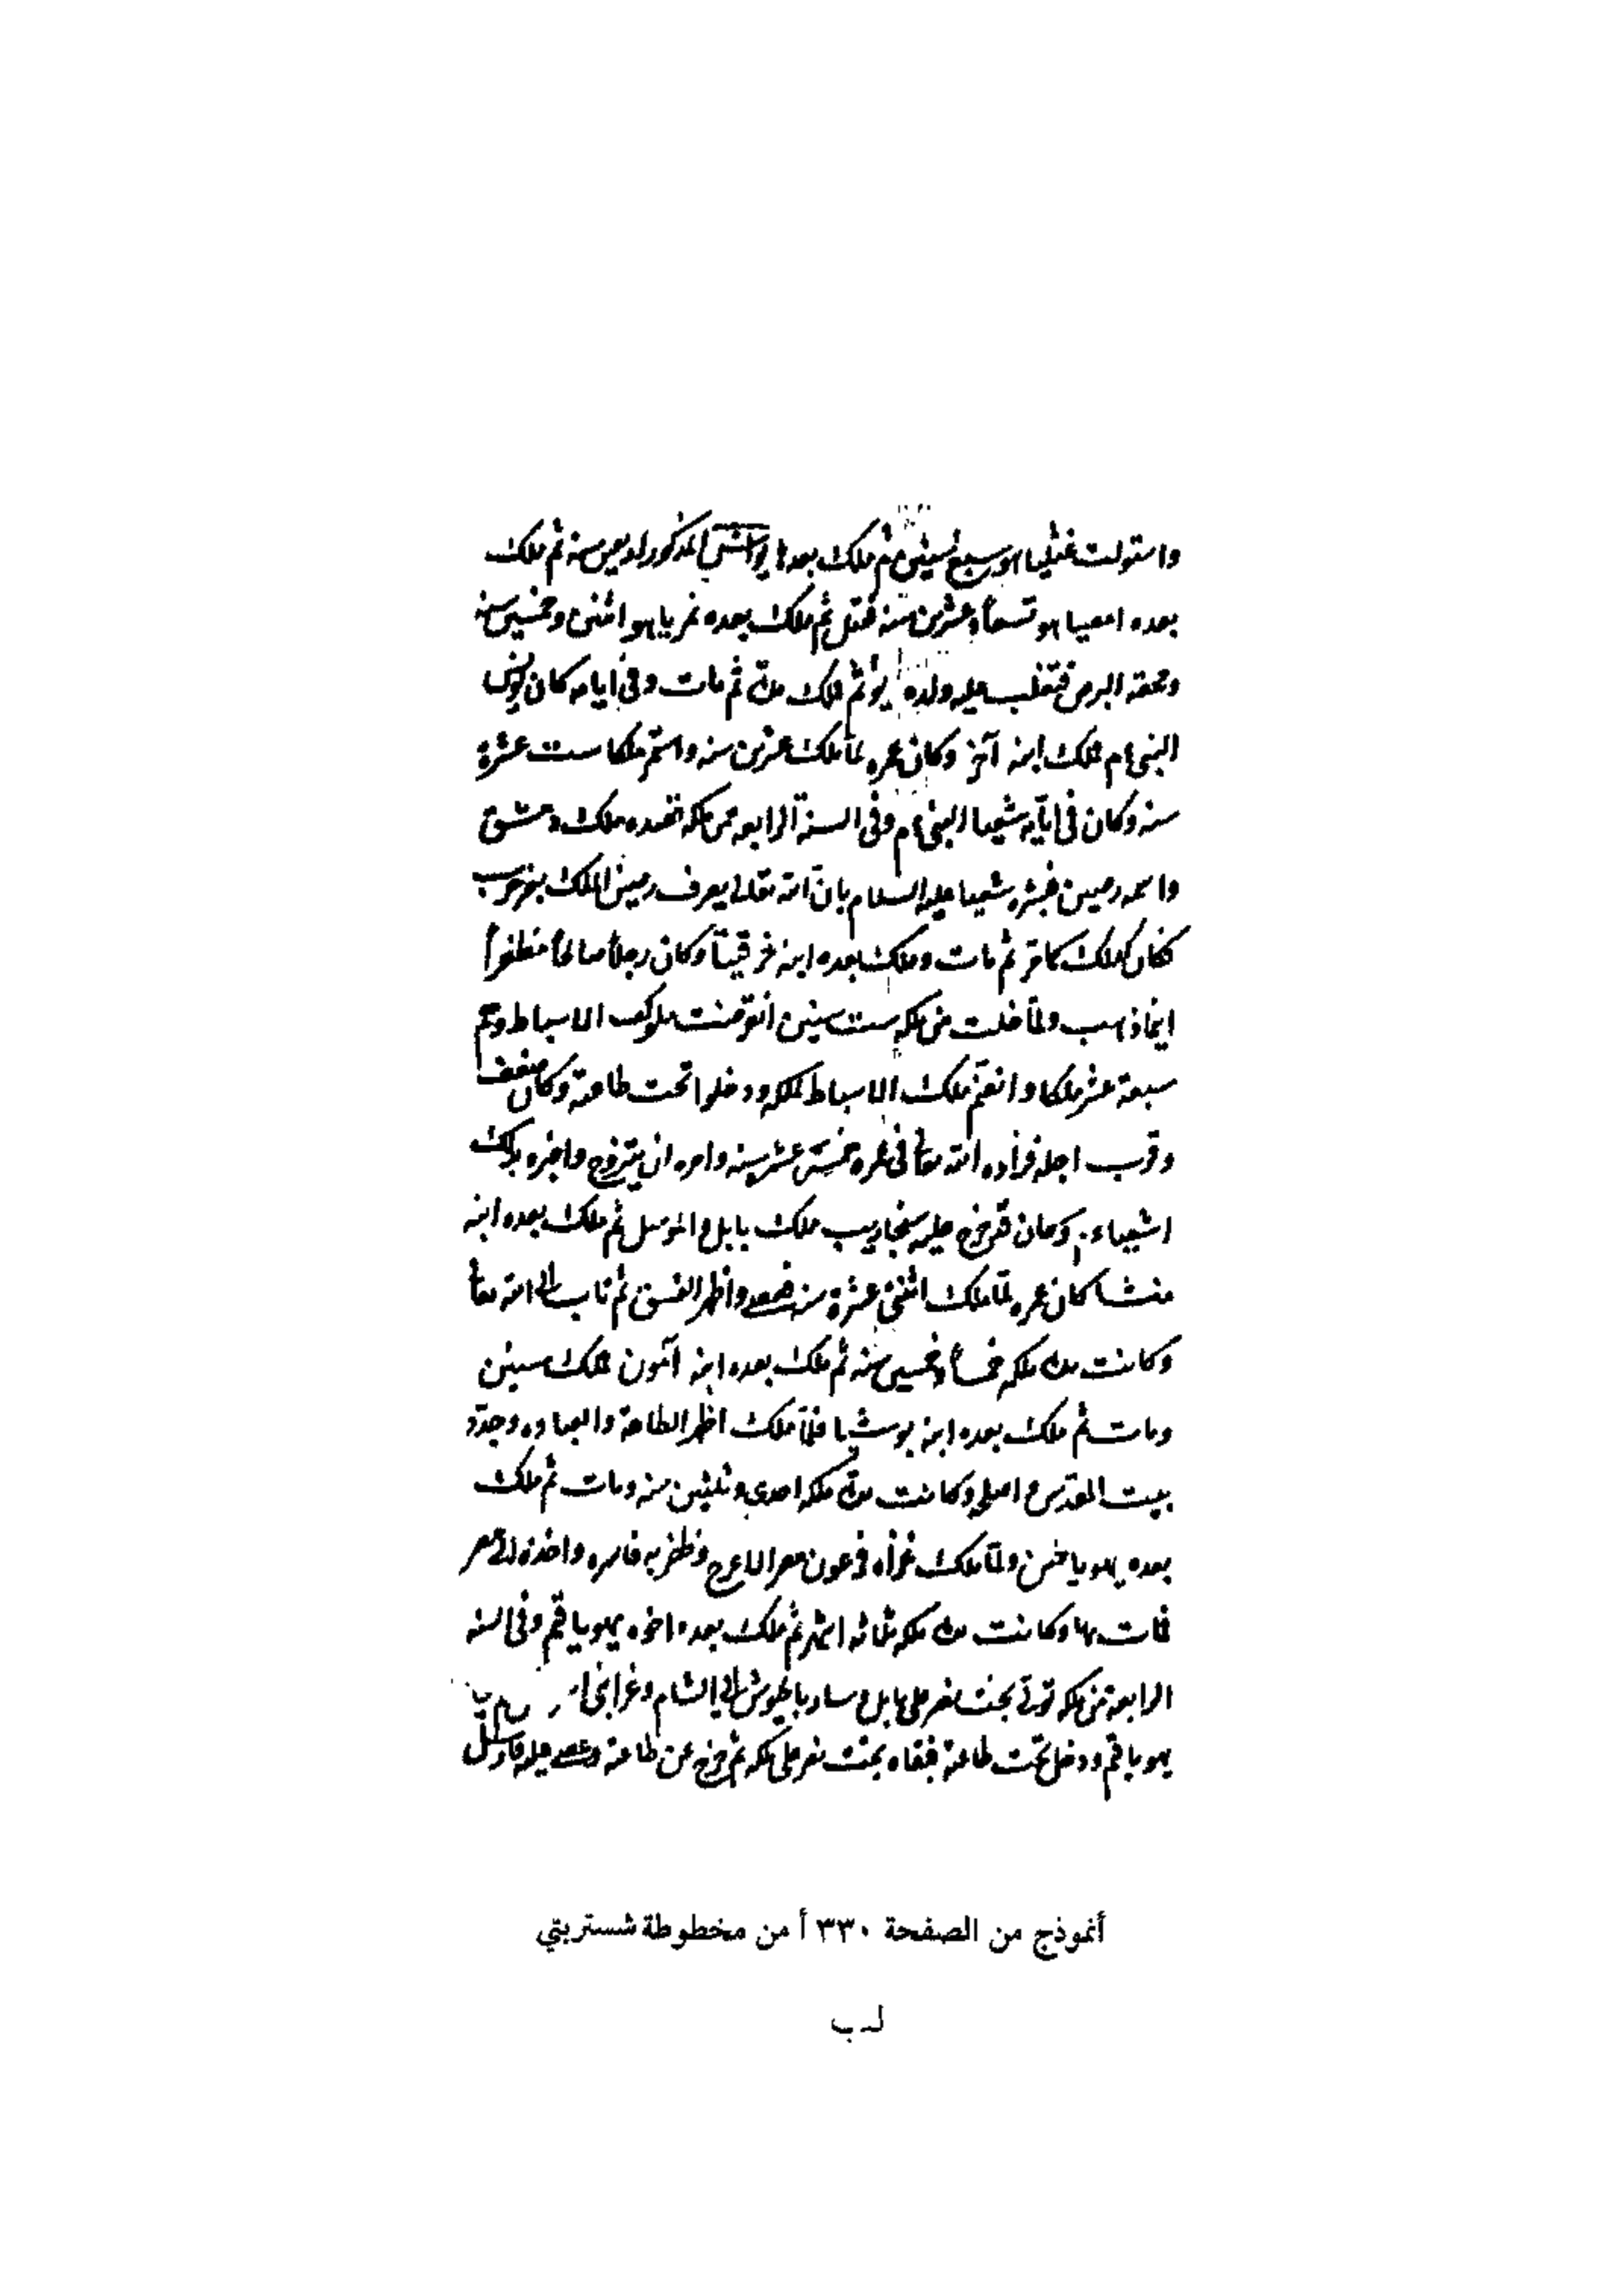 واستولت عثليا هو سبع سنين ثم ملك بعدها يواش المذكور اربعين سنه ثم ملك
بعده امصيا هو تسعاً وعشرين سنه فقتل ثم ملك بعده عزيا هو اثنى وخمسين سنه
ولحقه البرص فتغلب عليه ولده يوثم ملك مدة ثم مات وفى ايامه كان يونس
النبى ءم ملك ابنه آحز وكان عمره لما ملك عشرين سنه واستمر ملكا ست عشرة
سنه وكان فى ايامه شعيا النبى ءم وفى السنة الرابعه من ملكه قصده ملك دمشق
واسمه رصين فبشره شعيا عليه السلام بان الله تعالى يصرف رصين الملك بغير حرب
فكان كذلك ثم مات وملك بعده ابنه حزقيا وكان رجلاً صالحاً مظفراً
اينما ذهب ولما خلت من ملكه ست سنين انقرضت ملوك الاسباط وهم
سبعة عشر ملكا وانضم ملك الاسباط لملكه ودخلوا تحت طاعته وكان ضعف
وقرب اجله فزاده الله تعا فى عمره خمسة عشر سنه وامره ان يتزوج واخبره بذلك
اشعياء وكان قد خرج عليه سنحاريب ملك بابل والموصل ثم ملك بعده ابنه
منشا كان عمره لما ملك اثنتى عشرة سنه فعصى واظهر الفسق ثم تاب الى الله تعا
وكانت مدة ملكه خمساً وخمسين سنه ثم ملك بعده ابنه آمون ملك سنين
ومات ثم ملك بعده ابنه يوشيا فلما ملك اظهر الطاعة والعباده وجدد
بيت المقدس واصلحه وكانت مدة ملكه احدى وثلثين سنه ومات ثم ملك
بعده يهوياحن ولما ملك غزاه فرعون مصر الاعرج وظفر به فاسره واخذه الى مصر
فمات بها وكانت مدة ملكه ثلاثه اشهر ثم ملك بعده اخوه يهوياقم وفى السنه
الرابعة من ملكه تولى بخت نصر على بابل وسار بالجيوش الى الشام وغزا بنى
يهوياقم ودخل تحت طاعته فبقاه بخت نصر على ملكه ثم خرج عن طاعته وعصى عليه فارسل
أنموذج من الصفحة ٣٣٠ أ من مخطوطة شستربتي
لـ ب